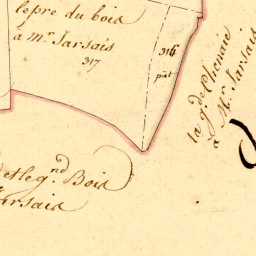 le pré du bois
à Mr. Jarsais
317
316
pat
la gde Chenaie
à Mr. Jarsais
et le gnd Bois
Jarsais